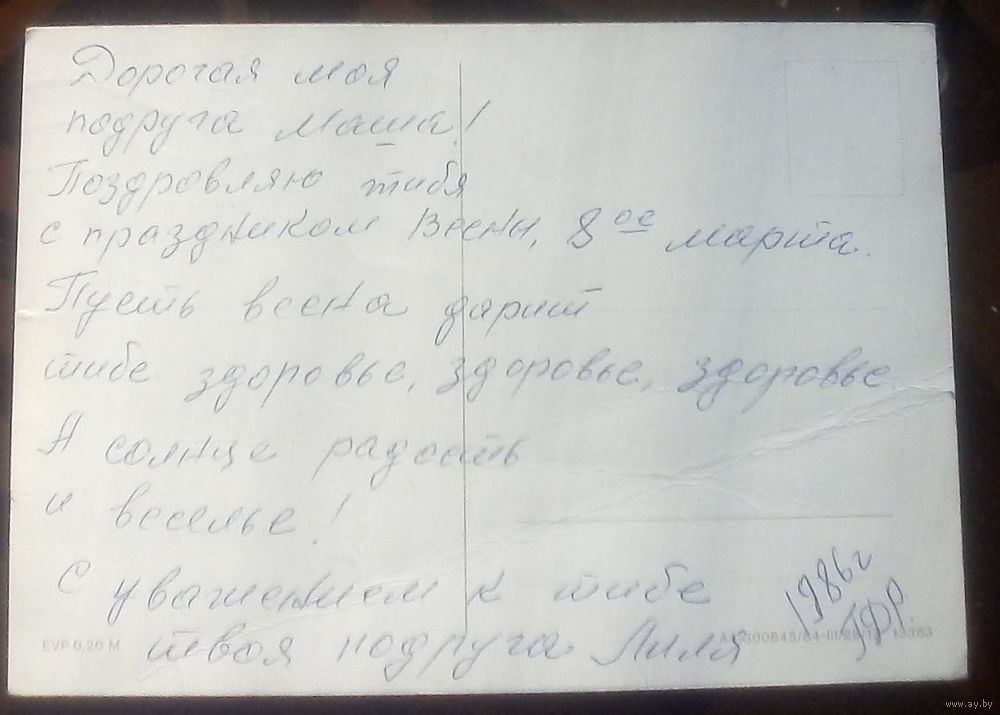 Дорогая моя
подруга Маша!
Поздровляю тибя
с праздником Весны, 8ое марта.
Пусть весна дарит
тибе здоровье, здоровье, здоровье
А солнце радость
и веселье!
С уважением к тибе
твоя подруга Лиля
1986г
EVP 0,20 M
www.ay.by